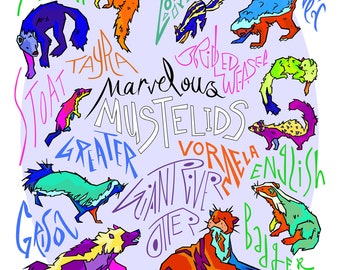 TAYRA
STRIPED WEASEL
STOAT
Marvelous
MUSTELIDS
GREATER
GRISON
VORMELA
ENGLISH
BADGER
GIANT RIVER
OTTER